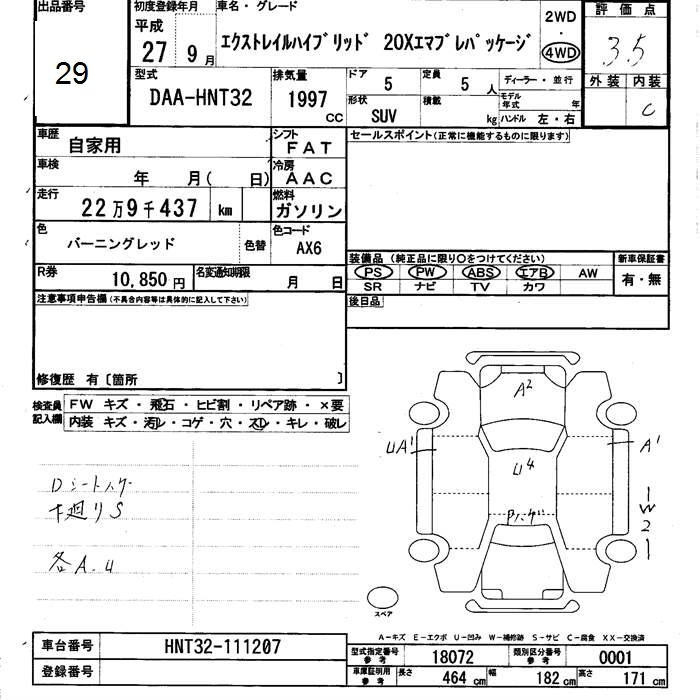 出品番号
29
初度登録年月
平成
27 9月
車名・グレード
エクストレイルハイブリッド 20Xエマブレパッケージ
2WD
・
4WD
評価点
3.5
外装 内装
C
型式
DAA-HNT32
排気量
1997
CC
ドア
5
定員
5 人
ディーラー・並行
形状
SUV
積載
kg
モデル
年式 年
ハンドル 左・右
車歴
自家用
シフト
FAT
車検
年 月( 日)
冷房
AAC
走行
22万9千437 km
燃料
ガソリン
色
バーニングレッド
色替
色コード
AX6
R券
10,850円
名変通知期限
月 日
セールスポイント(正常に機能するものに限ります)
装備品(純正品に限り○をつけてください)
PS PW ABS エアB AW
SR ナビ TV カワ
新車保証書
有・無
後日品
注意事項申告欄(不具合内容等は具体的に記入して下さい)
修復歴 有〔箇所 〕
検査員
記入欄
FW キズ・飛石・ヒビ割・リペア跡・×要
内装 キズ・汚レ・コゲ・穴・スレ・キレ・破レ
Dシート
下廻りS
各A.U
A2
UA1
U4
A1
W2
スペア
A-キズ E-エクボ U-凹み W-補修跡 S-サビ C-腐食 XX-交換済
車台番号
HNT32-111207
登録番号
型式指定番号
参考
18072
類別区分番号
参考
0001
車庫証明用
参考
長さ
464 cm
幅
182 cm
高さ
171 cm